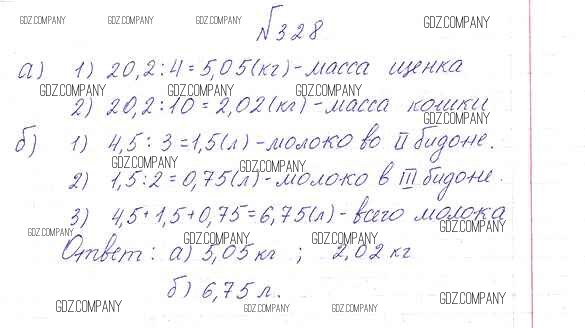 GDZ.COMPANY GDZ.COMPANY GDZ.COMPANY GDZ.COMPANY
№328
а) 1) 20,2 : 4 = 5,05 (кг) - масса щенка
GDZ.COMPANY GDZ.COMPANY GDZ.COMPANY
2) 20,2 : 10 = 2,02 (кг) - масса кошки
GDZ.COMPANY
б) 1) 4,5 : 3 = 1,5 (л) - молоко во II бидоне.
GDZ.COMPANY GDZ.COMPANY
2) 1,5 : 2 = 0,75 (л) - молоко в III бидоне.
3) 4,5 + 1,5 + 0,75 = 6,75 (л) - всего молока
GDZ.COMPANY GDZ.COMPANY GDZ.COMPANY GDZ.COMPANY
Ответ: а) 5,05 кг ; 2,02 кг
б) 6,75 л.
GDZ.COMPANY GDZ.COMPANY GDZ.COMPANY GDZ.COMPANY